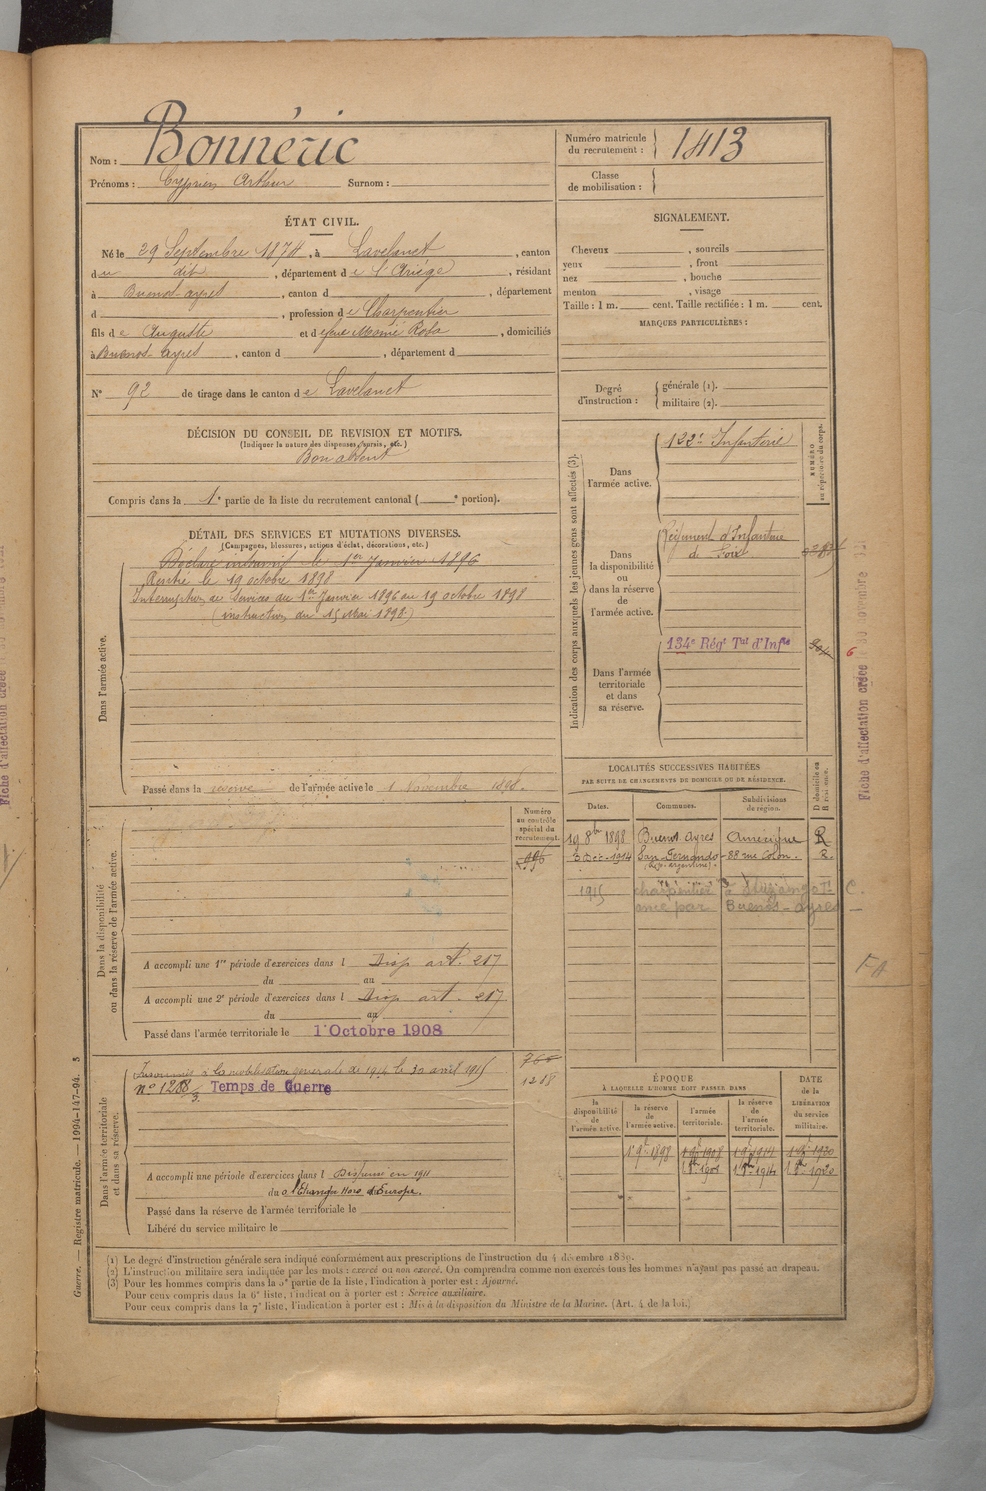 Nom : Bonnéric
Prénoms : Cyprien Arthur Surnom :
Numéro matricule du recrutement : 1413
Classe de mobilisation :
ÉTAT CIVIL.
Né le 29 Septembre 1874, à Lavelanet, canton
du dit, département de l'Ariège, résidant
à Buenos-ayres, canton d , département
d , profession de Charpentier
fils de Auguste et d , domiciliés
à Buenos-ayres, canton d , département d
N° 92 de tirage dans le canton de Lavelanet
DÉCISION DU CONSEIL DE REVISION ET MOTIFS.
(Indiquer la nature des dispenses, sursis, etc.)
Bon absent
Compris dans la 1e partie de la liste du recrutement cantonal ( e portion).
SIGNALEMENT.
Cheveux , sourcils
yeux , front
nez , bouche
menton , visage
Taille : 1 m. cent. Taille rectifiée : 1 m. cent.
MARQUES PARTICULIÈRES :
Degré d'instruction : générale (1).
militaire (2).
DÉTAIL DES SERVICES ET MUTATIONS DIVERSES.
(Campagnes, blessures, actions d'éclat, décorations, etc.)
Dans l'armée active.
Déclaré insoumis le 1er Janvier 1896
Rentré le 19 octobre 1898
Interruption de Services du 1er Janvier 1896 au 19 octobre 1898
(instruction du 15 Mai 1898)
Passé dans la réserve de l'armée active le 1 Novembre 1898.
Indication des corps auxquels les jeunes gens sont affectés (3).
NUMÉRO au répertoire du corps.
Dans l'armée active.
122e Infanterie
Dans la disponibilité ou dans la réserve de l'armée active.
Régiment d'Infanterie
de Foix
Dans l'armée territoriale et dans sa réserve.
134e Régt Tal d'Infie
6
Fiche d'affectation créée le 30 novembre
LOCALITÉS SUCCESSIVES HABITÉES
PAR SUITE DE CHANGEMENTS DE DOMICILE OU DE RÉSIDENCE.
Dates. Communes. Subdivisions de région. D domicile ou R résidence.
19 8bre 1898 Buenos Ayres Amérique R
3 Dec. 1914 San-Fernando 88 rue Colon. R.
(Rép. argentine)
1915 charpentier
Buenos-ayres
Dans la disponibilité ou dans la réserve de l'armée active.
Numéro au contrôle spécial du recrutement.
A accompli une 1re période d'exercices dans l Disp art. 217
du au
A accompli une 2e période d'exercices dans l Disp art. 217
du au
Passé dans l'armée territoriale le 1 Octobre 1908
Dans l'armée territoriale et dans sa réserve.
Insoumis à la mobilisation générale de 1914 le 30 avril 1915
n° 1288/3. Temps de Guerre
1218
A accompli une période d'exercices dans l Dispensé en 1911
du a l'Etranger Hors d'Europe.
Passé dans la réserve de l'armée territoriale le
Libéré du service militaire le
ÉPOQUE
À LAQUELLE L'HOMME DOIT PASSER DANS
DATE de la LIBÉRATION du service militaire.
la disponibilité de l'armée active. la réserve de l'armée active. l'armée territoriale. la réserve de l'armée territoriale.
1 9bre 1898 1 9bre 1908 1 9bre 1914 1 9bre 1920
1 8bre 1908 1 8bre 1914 1 8bre 1920
(1) Le degré d'instruction générale sera indiqué conformément aux prescriptions de l'instruction du 4 décembre 1889.
(2) L'instruction militaire sera indiquée par les mots : exercé ou non exercé. On comprendra comme non exercés tous les hommes n'ayant pas passé au drapeau.
(3) Pour les hommes compris dans la 5e partie de la liste, l'indication à porter est : Ajourné.
Pour ceux compris dans la 6e liste, l'indication à porter est : Service auxiliaire.
Pour ceux compris dans la 7e liste, l'indication à porter est : Mis à la disposition du Ministre de la Marine. (Art. 4 de la loi.)
Guerre. — Registre matricule. — 1994-147-94. 5